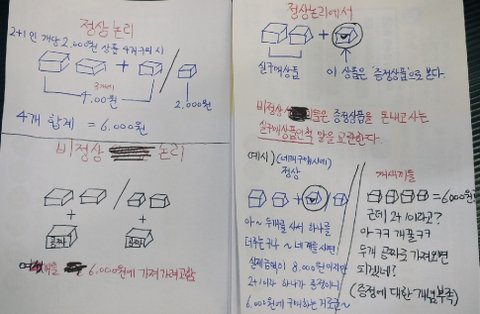 정상 논리
2+1인 개당 2,000원 상품 4개구매 시
4,000원
2,000원
4개 합계 = 6,000원
비정상 논리
공짜
공짜
6,000원에 가져가려고함
정상논리에서
실구매상품
이 상품은 '증정상품'으로 본다.
비정상 은 증정상품을 돈내고 사는
실구매상품인척 말을 교란한다.
예시) (네개구매시에)
정상
아~ 두개를 사서 하나를
더주는구나 ~ 네개를 사면!
실제금액이 8,000원이지만
2+1이라 하나가 증정이니
6,000원에 구매하는 거로군~
개새끼들
= 6,000원
근데 2+1이라고?
아 ㅋㅋ 개꿀ㅋㅋ
두개 공짜로 가져오면
되겠네?
(증정에 대한 개념부족)